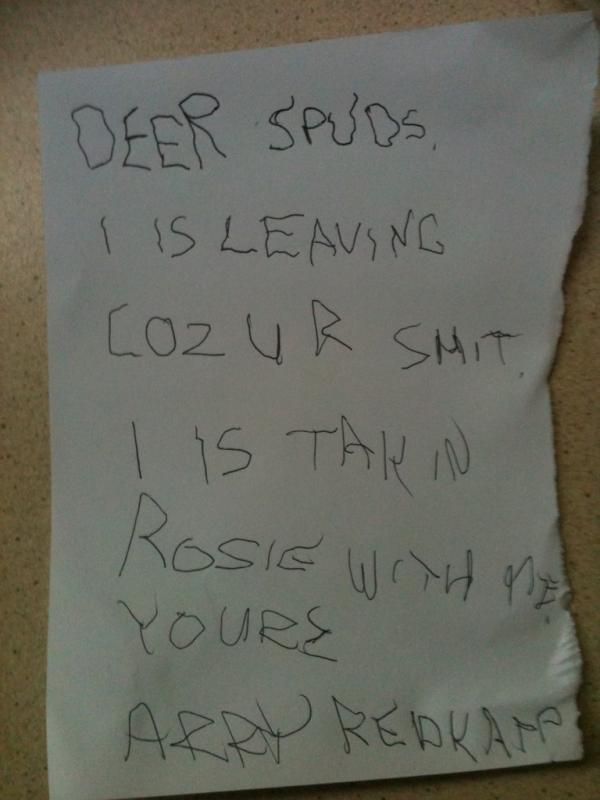 DEER SPUDS.
I IS LEAVING
COZ U R SHIT.
I IS TAKIN
ROSIE WITH ME.
YOURS
ARRY REDKAPP